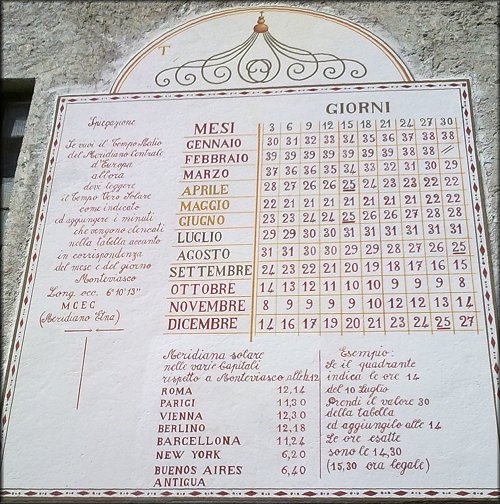 T
GIORNI
Spiegazione
Se vuoi il Tempo Medio
del Meridiano Centrale
d'Europa
allora
devi leggere
il Tempo Vero Solare
come indicato
ed aggiungere i minuti
che vengono elencati
nella tabella accanto
in corrispondenza
del mese e del giorno
Monteviasco
Long. occ. 6°10'13"
M C E C
(Meridiano Etna)
MESI 3 6 9 12 15 18 21 24 27 30
GENNAIO 30 31 32 33 34 35 36 37 38 38
FEBBRAIO 39 39 39 39 39 39 39 38 38 //
MARZO 37 36 35 35 34 33 32 31 30 29
APRILE 28 27 26 26 25 24 23 23 22 22
MAGGIO 22 21 21 21 21 21 21 21 22 22
GIUGNO 23 23 24 24 25 26 26 27 28 28
LUGLIO 29 29 30 30 31 31 31 31 31 31
AGOSTO 31 31 30 30 29 29 28 27 26 25
SETTEMBRE 24 23 22 21 20 19 18 17 16 15
OTTOBRE 14 13 12 11 10 10 9 9 9 8
NOVEMBRE 8 9 9 9 9 10 12 12 13 14
DICEMBRE 14 16 17 19 20 21 23 24 25 27
Meridiana solare
nelle varie Capitali
rispetto a Monteviasco alle h 12
ROMA 12,14
PARIGI 11,30
VIENNA 12,30
BERLINO 12,18
BARCELLONA 11,24
NEW YORK 6,20
BUENOS AIRES 6,40
ANTIGUA
Esempio:
Se il quadrante
indica le ore 14
del 10 Luglio
Prendi il valore 30
della tabella
ed aggiungilo alle 14
Le ore esatte
sono le 14,30
(15,30 ora legale)